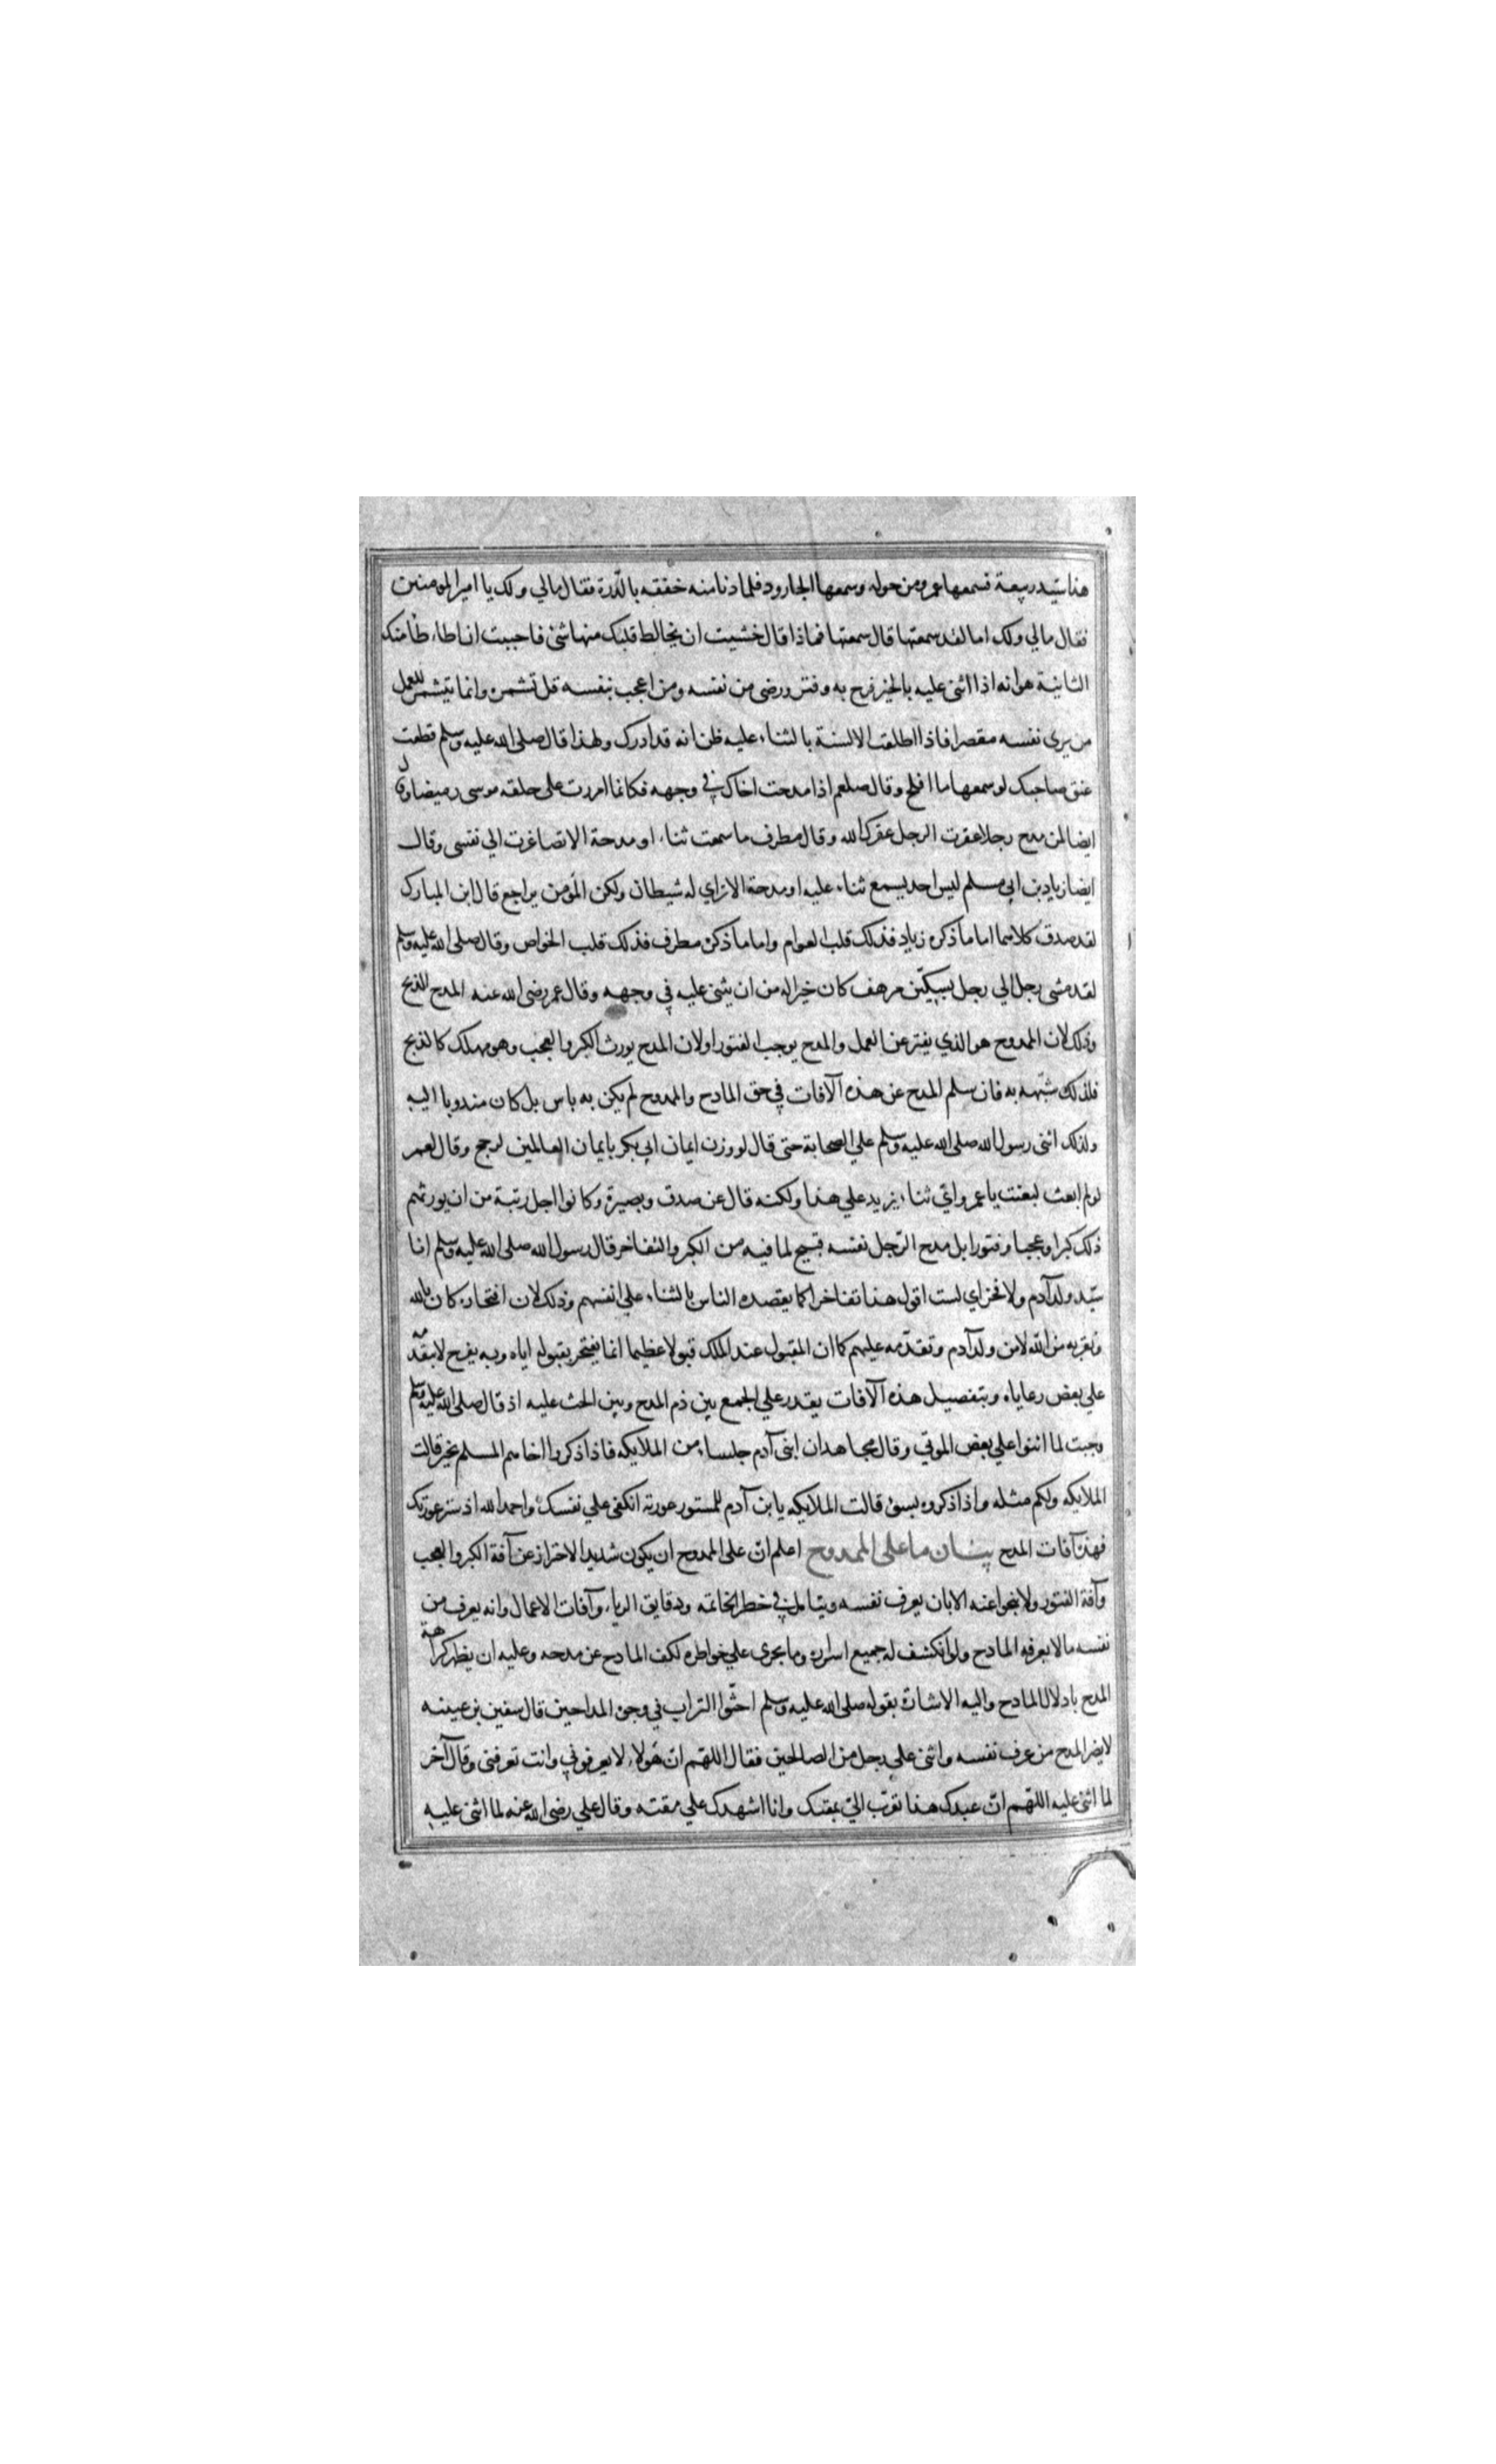 هذا سيّد ربيعة فسمعها عمر ومن حوله وسمعها الجارود فلما دنا منه خفقه بالدّرة فقال مالي ولك يا امير المومنين
فقال مالي ولك اما لقد سمعتها قال سمعتها فماذا قال خشيت ان يخالط قلبك منها شئ فاحببت ان اطاطا منك
الثانية هو انه اذا اثنى عليه بالخير فرح به وفتر ورضى من نفسه ومن اعجب بنفسه قل تشمره وانما يتشمر للعمل
من يرى نفسه مقصرا فاذا اطلقت الالسنة بالثناء عليه ظن انه قد ادرك ولهذا قال صلى الله عليه وسلم قطعت
عنق صاحبك لو سمعها ما افلح وقال صلعم اذا مدحت اخاك في وجهه فكانما امررت على حلقه موسى رميضا وقال
ايضا لمن مدح رجلا عقرت الرجل عقرك الله وقال مطرف ما سمعت ثناء او مدحة الا تصاغرت الي نفسى وقال
ايضا زياد بن ابي مسلم ليس احد يسمع ثناء عليه او مدحة الا تراي له شيطان ولكن المؤمن يراجع قال ابن المبارك
لقد صدق كلاهما اما ما ذكره زياد فذلك قلب العوام واما ما ذكره مطرف فذلك قلب الخواص وقال صلى الله عليه وسلم
لقد مشى رجل الي رجل بسكيّن مرهف كان خيرا له من ان يثنى عليه في وجهه وقال عمر رضى الله عنه المدح الذبح
وذلك لان الممدوح هو الذي يفتر عن العمل والمدح يوجب الفتور اولان المدح يورث الكبر والعجب وهو مهلك كالذبح
فلذلك شبّهه به فان سلم المدح عن هذه الآفات في حق المادح والممدوح لم يكن به باس بل كان مندوبا اليه
ولذلك اثنى رسول الله صلى الله عليه وسلم علي الصحابة حتى قال لو وزن ايمان ابي بكر بايمان العالمين لرجح وقال لعمر
لو لم ابعث لبعثت يا عمر وايّ ثناء يزيد علي هذا ولكنه قال عن صدق وبصيرة وكانوا اجل رتبة من ان يورثهم
ذلك كبرا وعجبا وفتورا بل مدح الرّجل نفسه قبيح لما فيه من الكبر والتفاخر قال رسول الله صلى الله عليه وسلم انا
سيّد ولد آدم ولا فخر اي لست اقول هذا تفاخرا كما يقصده الناس بالثناء علي انفسهم وذلك لان افتخاره كان بالله
وبقربه من الله لا من ولد آدم وتقدّمه عليهم كما ان المقبول عند الملك قبولا عظيما انما يفتخر بقبوله اياه وبه يفرح لا بتقدّمه
علي بعض رعاياه وبتفصيل هذه الآفات يقدر علي الجمع بين ذم المدح وبين الحث عليه اذ قال صلى الله عليه وسلم
وجبت لما اثنوا علي بعض الموتي وقال مجاهد ان لبنى آدم جلساء من الملايكه فاذا ذكروا اخاهم المسلم بخير قالت
الملايكه ولكم مثله واذا ذكروه بسوء قالت الملايكه يا بن آدم المستور عورته انكفى علي نفسك واحمد الله اذ ستر عورتك
فهذه آفات المدح بيان ما على الممدوح اعلم انّ على الممدوح ان يكون شديد الاحتراز عن آفة الكبر والعجب
وآفة الفتور ولا ينجوا عنه الا بان يعرف نفسه ويتامل في خطر الخاتمه ودقايق الرياء وآفات الاعمال وانه يعرف من
نفسه مالا يعرفه المادح ولو انكشف له جميع اسراره وما يجرى علي خواطره لكف المادح عن مدحه وعليه ان يظهر كراهة
المدح باذلال المادح واليه الاشارة بقوله صلى الله عليه وسلم احثّوا التراب في وجوه المداحين قال سفين بن عيينه
لا يضر المدح من عرف نفسه واثنى علي رجل من الصالحين فقال اللهم ان هولاء لا يعرفوني وانت تعرفنى وقال آخر
لما اثنى عليه اللهّم انّ عبدك هذا تقرّب اليّ بمقتك وانا اشهدك علي مقته وقال علي رضى الله عنه لما اثنى عليه